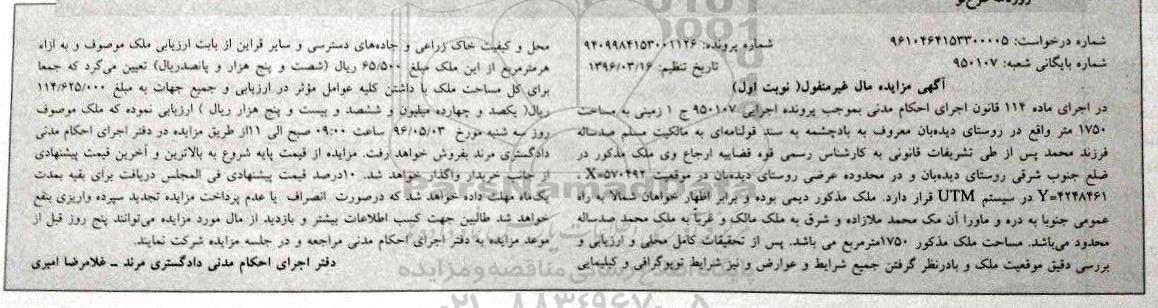 شماره درخواست: ۹۶۱۰۴۶۴۱۵۳۳۰۰۰۰۵
شماره پرونده: ۹۴۰۹۹۸۴۱۵۳۰۰۱۱۲۶
شماره بایگانی شعبه: ۹۵۰۱۰۷
تاریخ تنظیم: ۱۳۹۶/۰۳/۱۶
آگهی مزایده مال غیرمنقول( نوبت اول)
در اجرای ماده ۱۱۴ قانون اجرای احکام مدنی بموجب پرونده اجرایی ۹۵۰۱۰۷ ج ۱ زمینی به مساحت
۱۷۵۰ متر واقع در روستای دیده‌بان معروف به بادچشمه به سند قولنامه‌ای به مالکیت مسلم صدساله
فرزند محمد پس از طی تشریفات قانونی به کارشناس رسمی قوه قضاییه ارجاع وی ملک مذکور در
ضلع جنوب شرقی روستای دیده‌بان و در محدوده عرضی روستای دیده‌بان در موقعیت X=۵۷۰۴۹۲ ،
Y=۴۲۴۸۴۶۱ در سیستم UTM قرار دارد. ملک مذکور دیمی بوده و برابر اظهار خواهان شمالا به راه
عمومی جنوبا به دره و ماورا آن مک محمد ملازاده و شرق به ملک مالک و غرباً به ملک محمد صدساله
محدود می‌باشد. مساحت ملک مذکور ۱۷۵۰مترمربع می باشد. پس از تحقیقات کامل محلی و ارزیابی و
بررسی دقیق موقعیت ملک و بادرنظر گرفتن جمیع شرایط و عوارض و نیز شرایط توپوگرافی و کیلیمایی
محل و کیفیت خاک زراعی و جاده‌های دسترسی و سایر قراین از بابت ارزیابی ملک موصوف و به ازاء
هرمترمربع از این ملک مبلغ ۶۵/۵۰۰ ریال (شصت و پنج هزار و پانصدریال) تعیین می‌گرد که جمعا
برای کل مساحت ملک با داشتن کلیه عوامل مؤثر در ارزیابی و جمیع جهات به مبلغ ۱۱۴/۶۲۵/۰۰۰
ریال( یکصد و چهارده میلیون و ششصد و بیست و پنج هزار ریال ) ارزیابی نموده که ملک موصوف
روز سه شنبه مورخ ۹۶/۰۵/۰۳ ساعت ۰۹:۰۰ صبح الی ۱۱از طریق مزایده در دفتر اجرای احکام مدنی
دادگستری مرند بفروش خواهد رفت. مزایده از قیمت پایه شروع به بالاترین و آخرین قیمت پیشنهادی
از جانب خریدار واگذار خواهد شد. ۱۰درصد قیمت پیشنهادی فی المجلس دریافت برای بقیه بمدت
یک‌ماه مهلت داده خواهد شد که درصورت انصراف یا عدم پرداخت مزایده تجدید سپرده واریزی بنفع
خواهد شد طالبین جهت کسب اطلاعات بیشتر و بازدید از مال مورد مزایده می‌توانند پنج روز قبل از
موعد مزایده به دفتر اجرای احکام مدنی مراجعه و در جلسه مزایده شرکت نمایند.
دفتر اجرای احکام مدنی دادگستری مرند ــ غلامرضا امیری
ParsNamadData